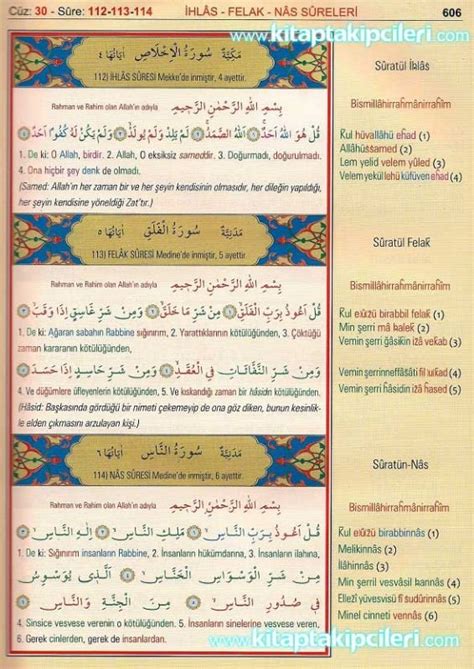 Cüz: 30 - Sûre: 112-113-114
İHLÂS - FELAK - NÂS SÛRELERİ
606
www.kitaptakipcileri.com
سُورَةُ الْاِخْلَاصِ
مَكِّيَّةٌ
اٰيَاتُهَا ٤
112) İHLÂS SÛRESİ Mekke'de inmiştir, 4 ayettir.
Rahman ve Rahim olan Allah'ın adıyla
بِسْمِ اللّٰهِ الرَّحْمٰنِ الرَّحِيمِ
قُلْ هُوَ اللّٰهُ اَحَدٌ ﴿١﴾ اَللّٰهُ الصَّمَدُ ﴿٢﴾ لَمْ يَلِدْ وَلَمْ يُولَدْ ﴿٣﴾ وَلَمْ يَكُنْ لَهُ كُفُوًا اَحَدٌ ﴿٤﴾
1. De ki: O Allah, birdir. 2. Allah, O eksiksiz sameddir. 3. Doğurmadı, doğurulmadı.
4. Ona hiçbir şey denk de olmadı.
(Samed: Allah'ın her zaman bir ve her şeyin kendisinin olmasıdır, her dileğin yapıldığı,
her şeyin kendisine yöneldiği Zat'tır.)
سُورَةُ الْفَلَقِ
مَدَنِيَّةٌ
اٰيَاتُهَا ٥
113) FELAK SÛRESİ Medine'de inmiştir, 5 ayettir.
Rahman ve Rahim olan Allah'ın adıyla
بِسْمِ اللّٰهِ الرَّحْمٰنِ الرَّحِيمِ
قُلْ اَعُوذُ بِرَبِّ الْفَلَقِ ﴿١﴾ مِنْ شَرِّ مَا خَلَقَ ﴿٢﴾ وَمِنْ شَرِّ غَاسِقٍ اِذَا وَقَبَ ﴿٣﴾
1. De ki: Ağaran sabahın Rabbine sığınırım, 2. Yarattıklarının kötülüğünden, 3. Çöktüğü
zaman kararanın kötülüğünden,
وَمِنْ شَرِّ النَّفَّاثَاتِ فِي الْعُقَدِ ﴿٤﴾ وَمِنْ شَرِّ حَاسِدٍ اِذَا حَسَدَ ﴿٥﴾
4. Ve düğümlere üfleyenlerin kötülüğünden, 5. Ve kıskandığı zaman bir hâsidin kötülüğünden.
(Hâsid: Başkasında gördüğü bir nimeti çekemeyip de ona göz diken, bunun kesinlik-
le elden çıkmasını arzulayan kişi.)
سُورَةُ النَّاسِ
مَدَنِيَّةٌ
اٰيَاتُهَا ٦
114) NÂS SÛRESİ Medine'de inmiştir, 6 ayettir.
Rahman ve Rahim olan Allah'ın adıyla
بِسْمِ اللّٰهِ الرَّحْمٰنِ الرَّحِيمِ
قُلْ اَعُوذُ بِرَبِّ النَّاسِ ﴿١﴾ مَلِكِ النَّاسِ ﴿٢﴾ اِلٰهِ النَّاسِ ﴿٣﴾
1. De ki: Sığınırım insanların Rabbine, 2. İnsanların hükümdarına, 3. İnsanların ilahına,
مِنْ شَرِّ الْوَسْوَاسِ الْخَنَّاسِ ﴿٤﴾ اَلَّذِي يُوَسْوِسُ
فِي صُدُورِ النَّاسِ ﴿٥﴾ مِنَ الْجِنَّةِ وَالنَّاسِ ﴿٦﴾
4. Sinsice vesvese verenin o kötülüğünden. 5. İnsanların sinelerine vesvese veren,
6. Gerek cinlerden, gerek de insanlardan.
Sûratül İhlâs
Bismillâhirrahmânirrahîm
Kul hüvallâhü ehad (1)
Allâhüssamed (2)
Lem yelid velem yûled (3)
Velem yekül lehü küfüven ehad (4)
Sûratül Felak
Bismillâhirrahmânirrahîm
Kul eûzü birabbil felak (1)
Min şerri mâ halek (2)
Vemin şerri ğâsikin izâ vekab (3)
Vemin şerrinneffâsâti fil ukad (4)
Vemin şerri hâsidin izâ hased (5)
Sûratün-Nâs
Bismillâhirrahmânirrahîm
Kul eûzü birabbinnâs (1)
Melikinnâs (2)
İlâhinnâs (3)
Min şerril vesvâsil hannâs (4)
Ellezî yüvesvisü fî sudûrinnâs (5)
Minel cinneti vennâs (6)
www.kitaptakipcileri.com